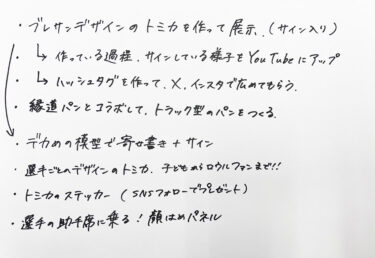 ・ブレサンデザインのトミカを作って展示.(サイン入り)
・↳作っている過程.サインしている様子をYouTubeにアップ
・↳ハッシュタグを作って、X、インスタで広めてもらう.
・縁道パンとコラボして.トラック型のパンをつくる.
・デカめの模型で寄せ書き+サイン
・選手ごとのデザインのトミカ.子どもからロウルファンまで!!
・トミカのステッカー(SNSフォローでプレゼント)
・選手の助手席に乗る!顔はめパネル